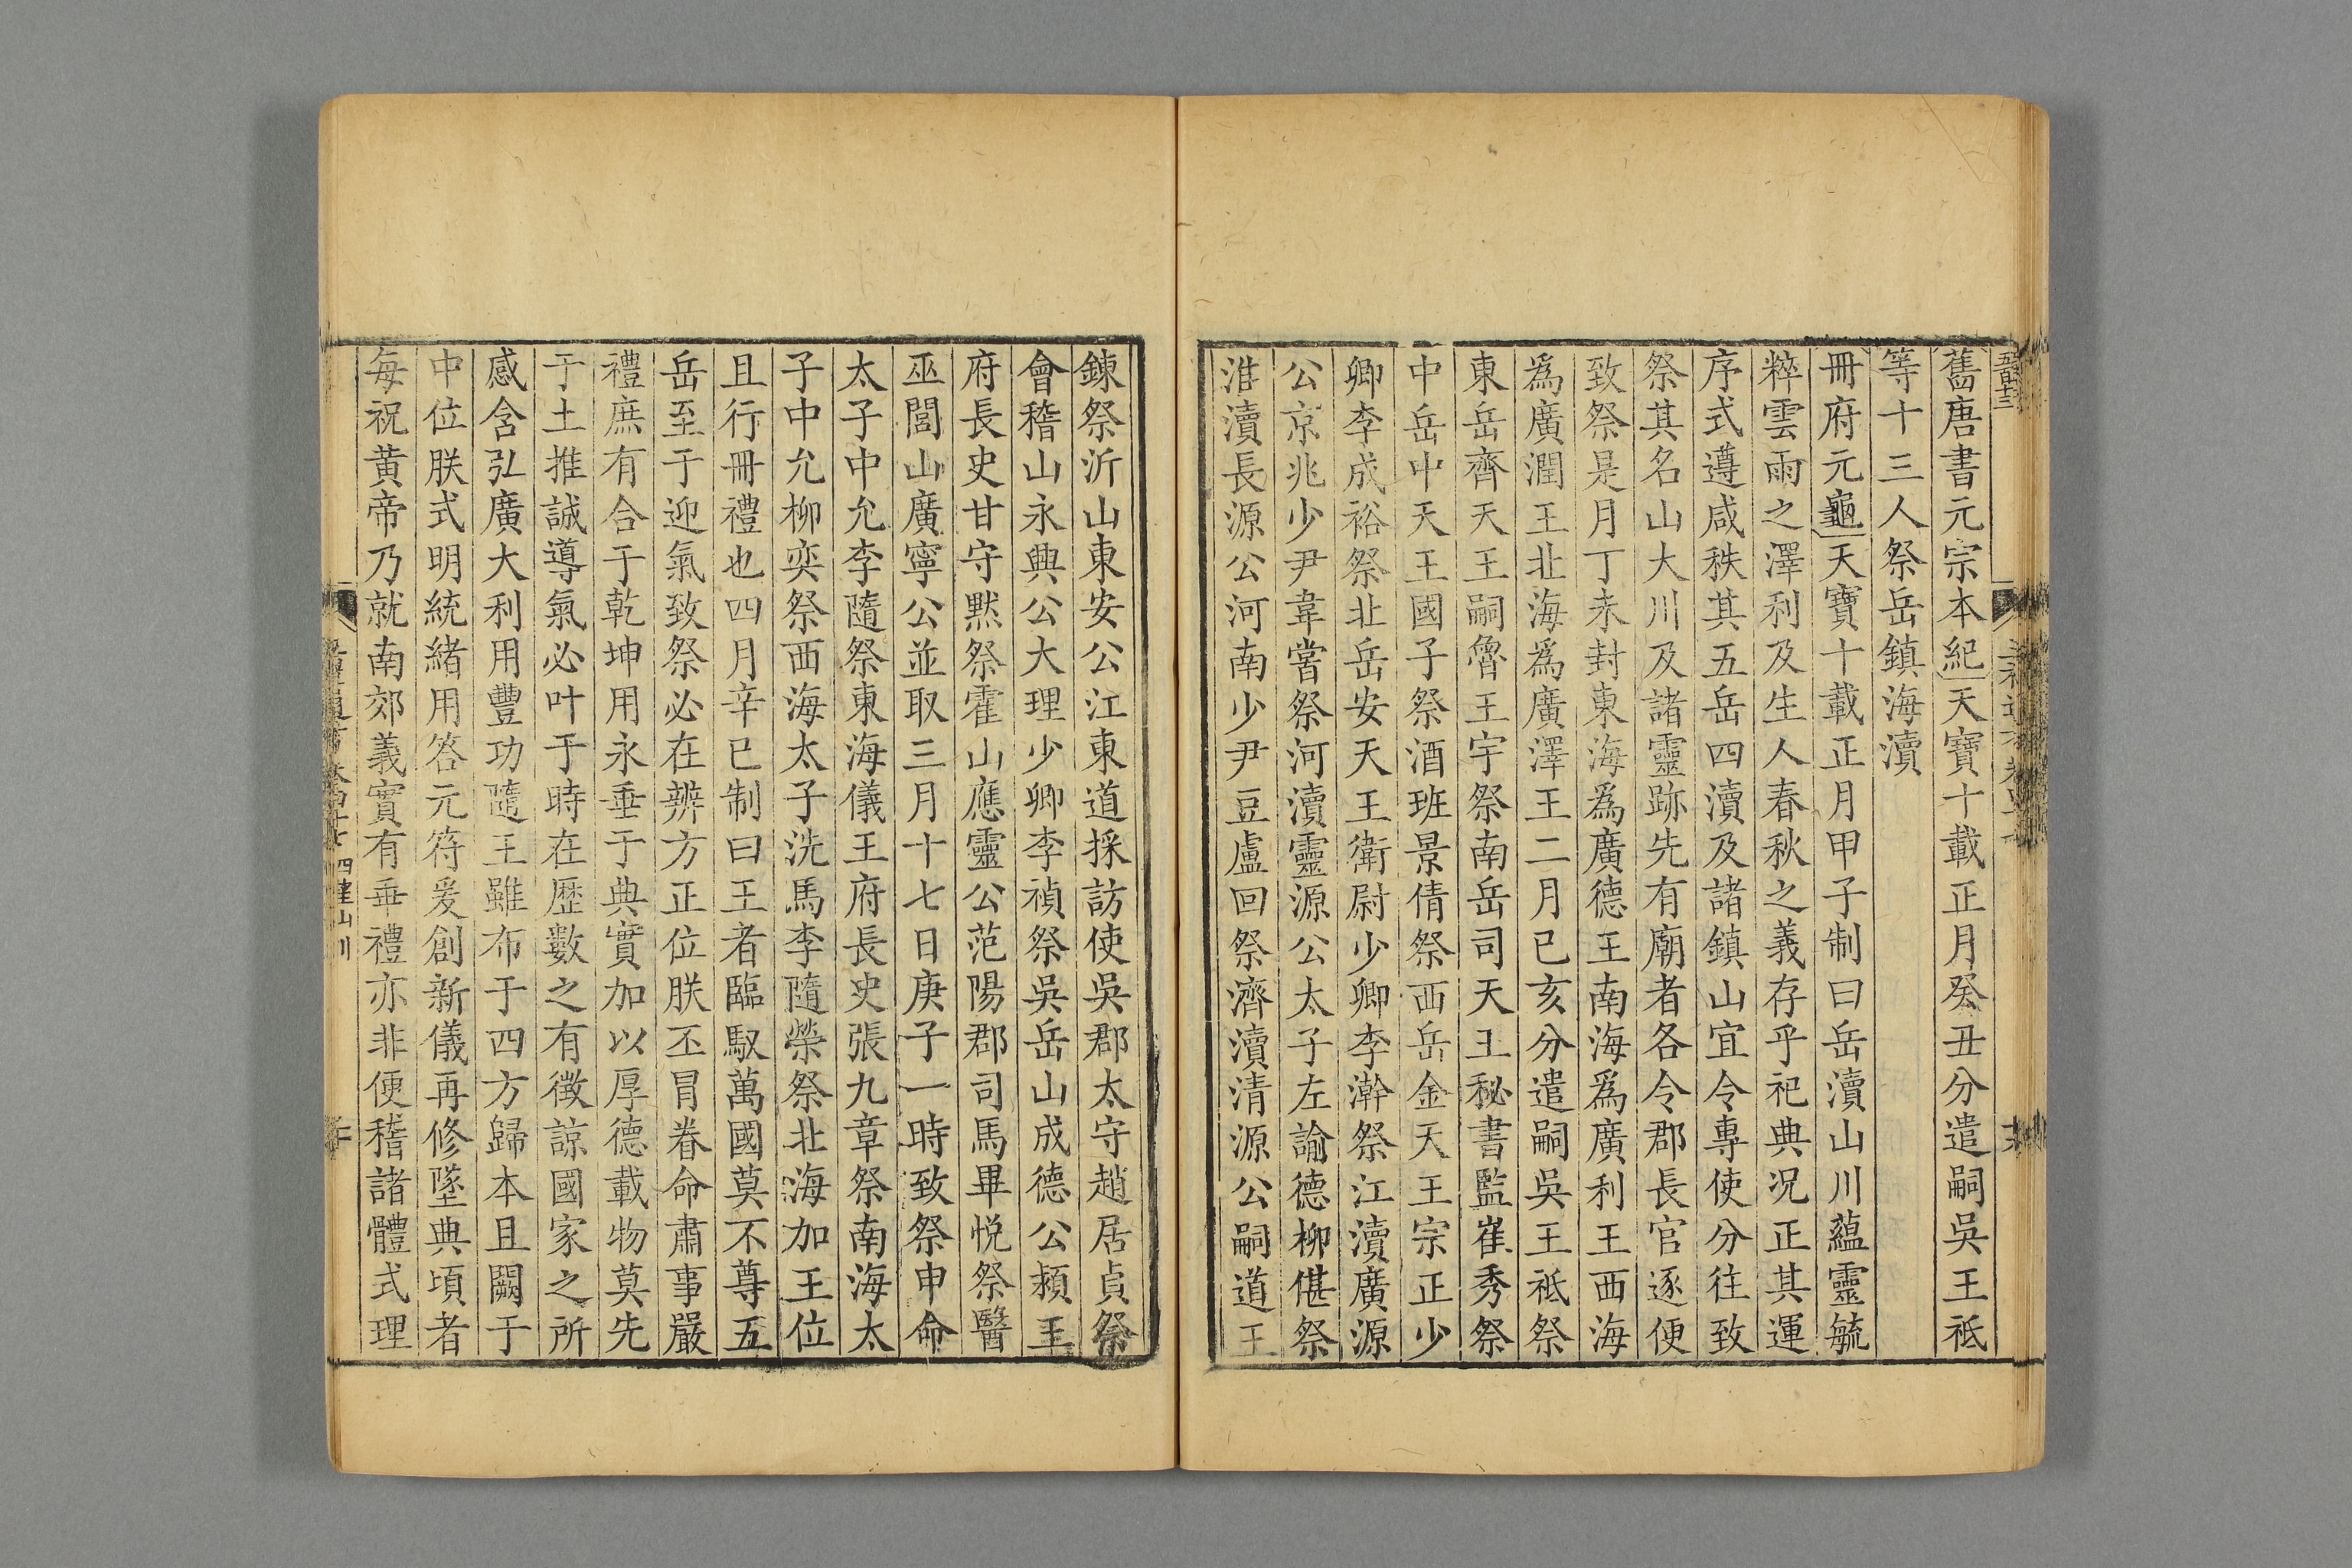 舊唐書元宗本紀天寶十載正月癸丑分遣嗣吳王祗
等十三人祭岳鎮海瀆
冊府元龜天寶十載正月甲子制曰岳瀆山川蘊靈毓
粹雲雨之澤利及生人春秋之義存乎祀典況正其運
序式遵咸秩其五岳四瀆及諸鎮山宜令專使分往致
祭其名山大川及諸靈跡先有廟者各令郡長官逐便
致祭是月丁未封東海爲廣德王南海爲廣利王西海
爲廣潤王北海爲廣澤王二月已亥分遣嗣吳王祗祭
東岳齊天王嗣魯王宇祭南岳司天王秘書監崔秀祭
中岳中天王國子祭酒班景倩祭西岳金天王宗正少
卿李成裕祭北岳安天王衛尉少卿李澣祭江瀆廣源
公京兆少尹韋嘗祭河瀆靈源公太子左諭德柳偡祭
淮瀆長源公河南少尹豆盧回祭濟瀆清源公嗣道王
鍊祭沂山東安公江東道採訪使吳郡太守趙居貞祭
會稽山永興公大理少卿李禎祭吳岳山成德公潁王
府長史甘守黙祭霍山應靈公范陽郡司馬畢悅祭醫
巫閭山廣寧公並取三月十七日庚子一時致祭申命
太子中允李隨祭東海儀王府長史張九章祭南海太
子中允柳奕祭西海太子洗馬李隨榮祭北海加王位
且行冊禮也四月辛已制曰王者臨馭萬國莫不尊五
岳至于迎氣致祭必在辨方正位朕丕冒眷命肅事嚴
禮庶有合于乾坤用永垂于典實加以厚德載物莫先
于土推誠導氣必叶于時在歷數之有徵諒國家之所
感含弘廣大利用豐功隨王雖布于四方歸本且闕于
中位朕式明統緒用答元符爰創新儀再修墜典頃者
每祝黄帝乃就南郊義實有乖禮亦非便稽諸體式理
四望山川